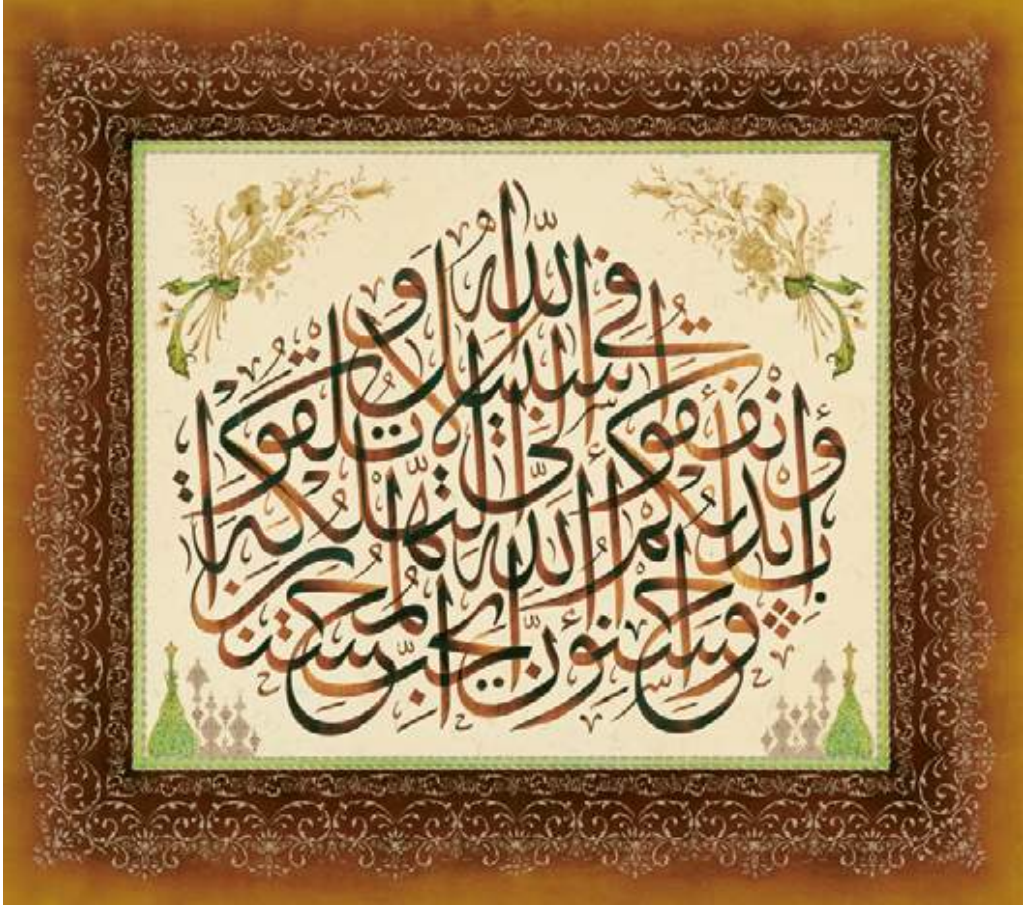 وَأَنفِقُوا فِي سَبِيلِ اللَّهِ وَلَا تُلْقُوا بِأَيْدِيكُمْ إِلَى التَّهْلُكَةِ وَأَحْسِنُوا إِنَّ اللَّهَ يُحِبُّ الْمُحْسِنِينَ